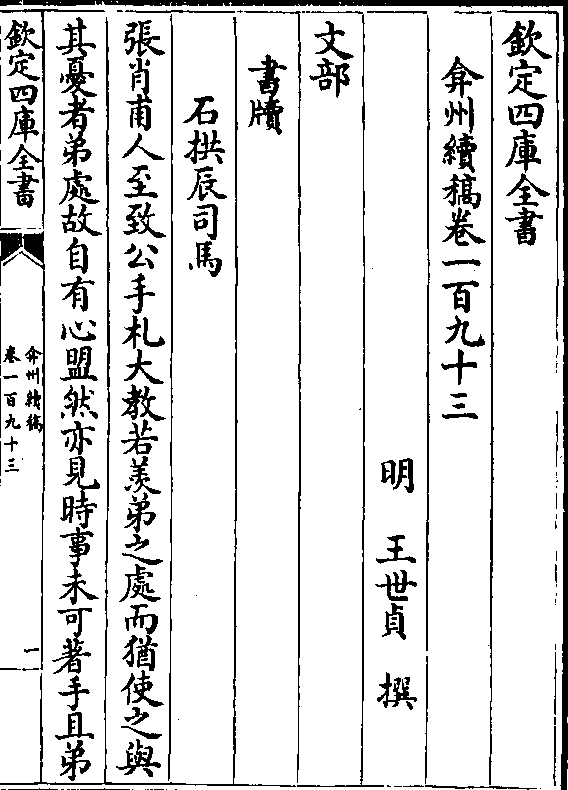 欽定四庫全書
弇州續稿卷一百九十三
明 王世貞 撰
文部
書牘
石拱辰司馬
張肖甫人至致公手札大教若羨弟之處而猶使之與
其憂者弟處故自有心盟然亦見時事未可著手且弟
欽定四庫全書
弇州續稿
卷一百九十三
一